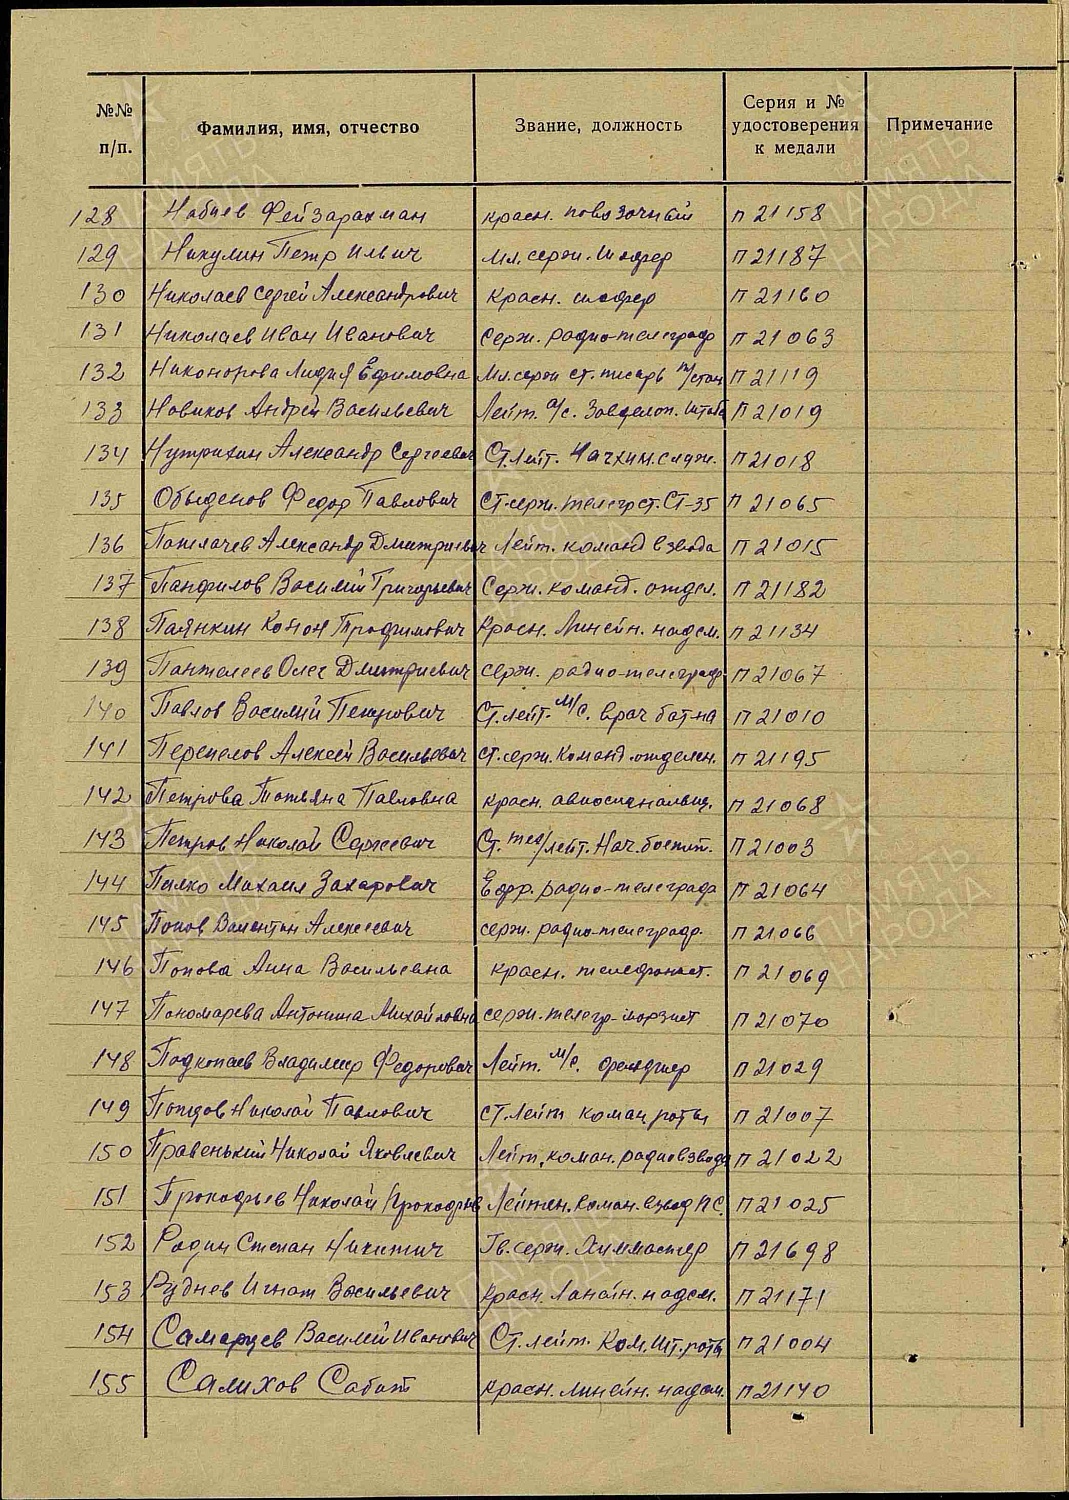 №№ п/п. Фамилия, имя, отчество Звание, должность Серия и № удостоверения к медали Примечание
128 Набиев Фейзарахман красн. повозочный П 21158
129 Никулин Петр Ильич мл. серж. шофер П 21187
130 Николаев Сергей Александрович красн. шофер П 21160
131 Николаев Иван Иванович Серж. радио-телеграф П 21063
132 Никонорова Лидия Ефимовна Мл. серж ст. писарь П 21119
133 Новиков Андрей Васильевич Лейт. а/с. Завделоп. штаба П 21019
134 Нутрихин Александр Сергеевич Ст. Лейт. Начхим. служ. П 21018
135 Обыденов Федор Павлович Ст. серж. телегр ст. СТ-35 П 21065
136 Александр Дмитриевич Лейт. команд взвода П 21015
137 Панфилов Василий Григорьевич Серж. команд. отдел. П 21182
138 Паянкин Конон Трофимович Красн. Линейн. надсм. П 21134
139 Пантелеев Олег Дмитриевич серж. радио-телеграф. П 21067
140 Павлов Василий Петрович Ст. лейт. м/с. врач бат-на П 21010
141 Перепелов Алексей Васильевич ст. серж. Команд. отделен. П 21195
142 Петрова Татьяна Павловна красн. авиосигнальщ. П 21068
143 Петров Николай Сергеевич Ст. тех/лейт. Нач. боепит. П 21003
144 Пилко Михаил Захарович Ефр. радио-телеграф П 21064
145 Попов Валентин Алексеевич серж. радио-телеграф. П 21066
146 Попова Анна Васильевна красн. телефонист. П 21069
147 Пономарева Антонина Михайловна серж. телегр-морзист П 21070
148 Подкопаев Владимир Федорович Лейт. м/с. фельдшер П 21029
149 Николай Павлович ст. Лейт коман, роты П 21007
150 Правенький Николай Яковлевич Лейт, коман. радиовзвода П 21022
151 Прокофьев Николай Прокофьев Лейтен. коман. взвод ПС. П 21025
152 Родин Степан Никитич Гв. серж. Химмастер П 21698
153 Руднев Игнат Васильевич Красн. Линейн. надсм. П 21171
154 Самарцев Василий Иванович Ст. лейт. Ком. Шт. роты П 21004
155 Салихов Сабит красн. линейн. надсм. П 21140
ПАМЯТЬ НАРОДА